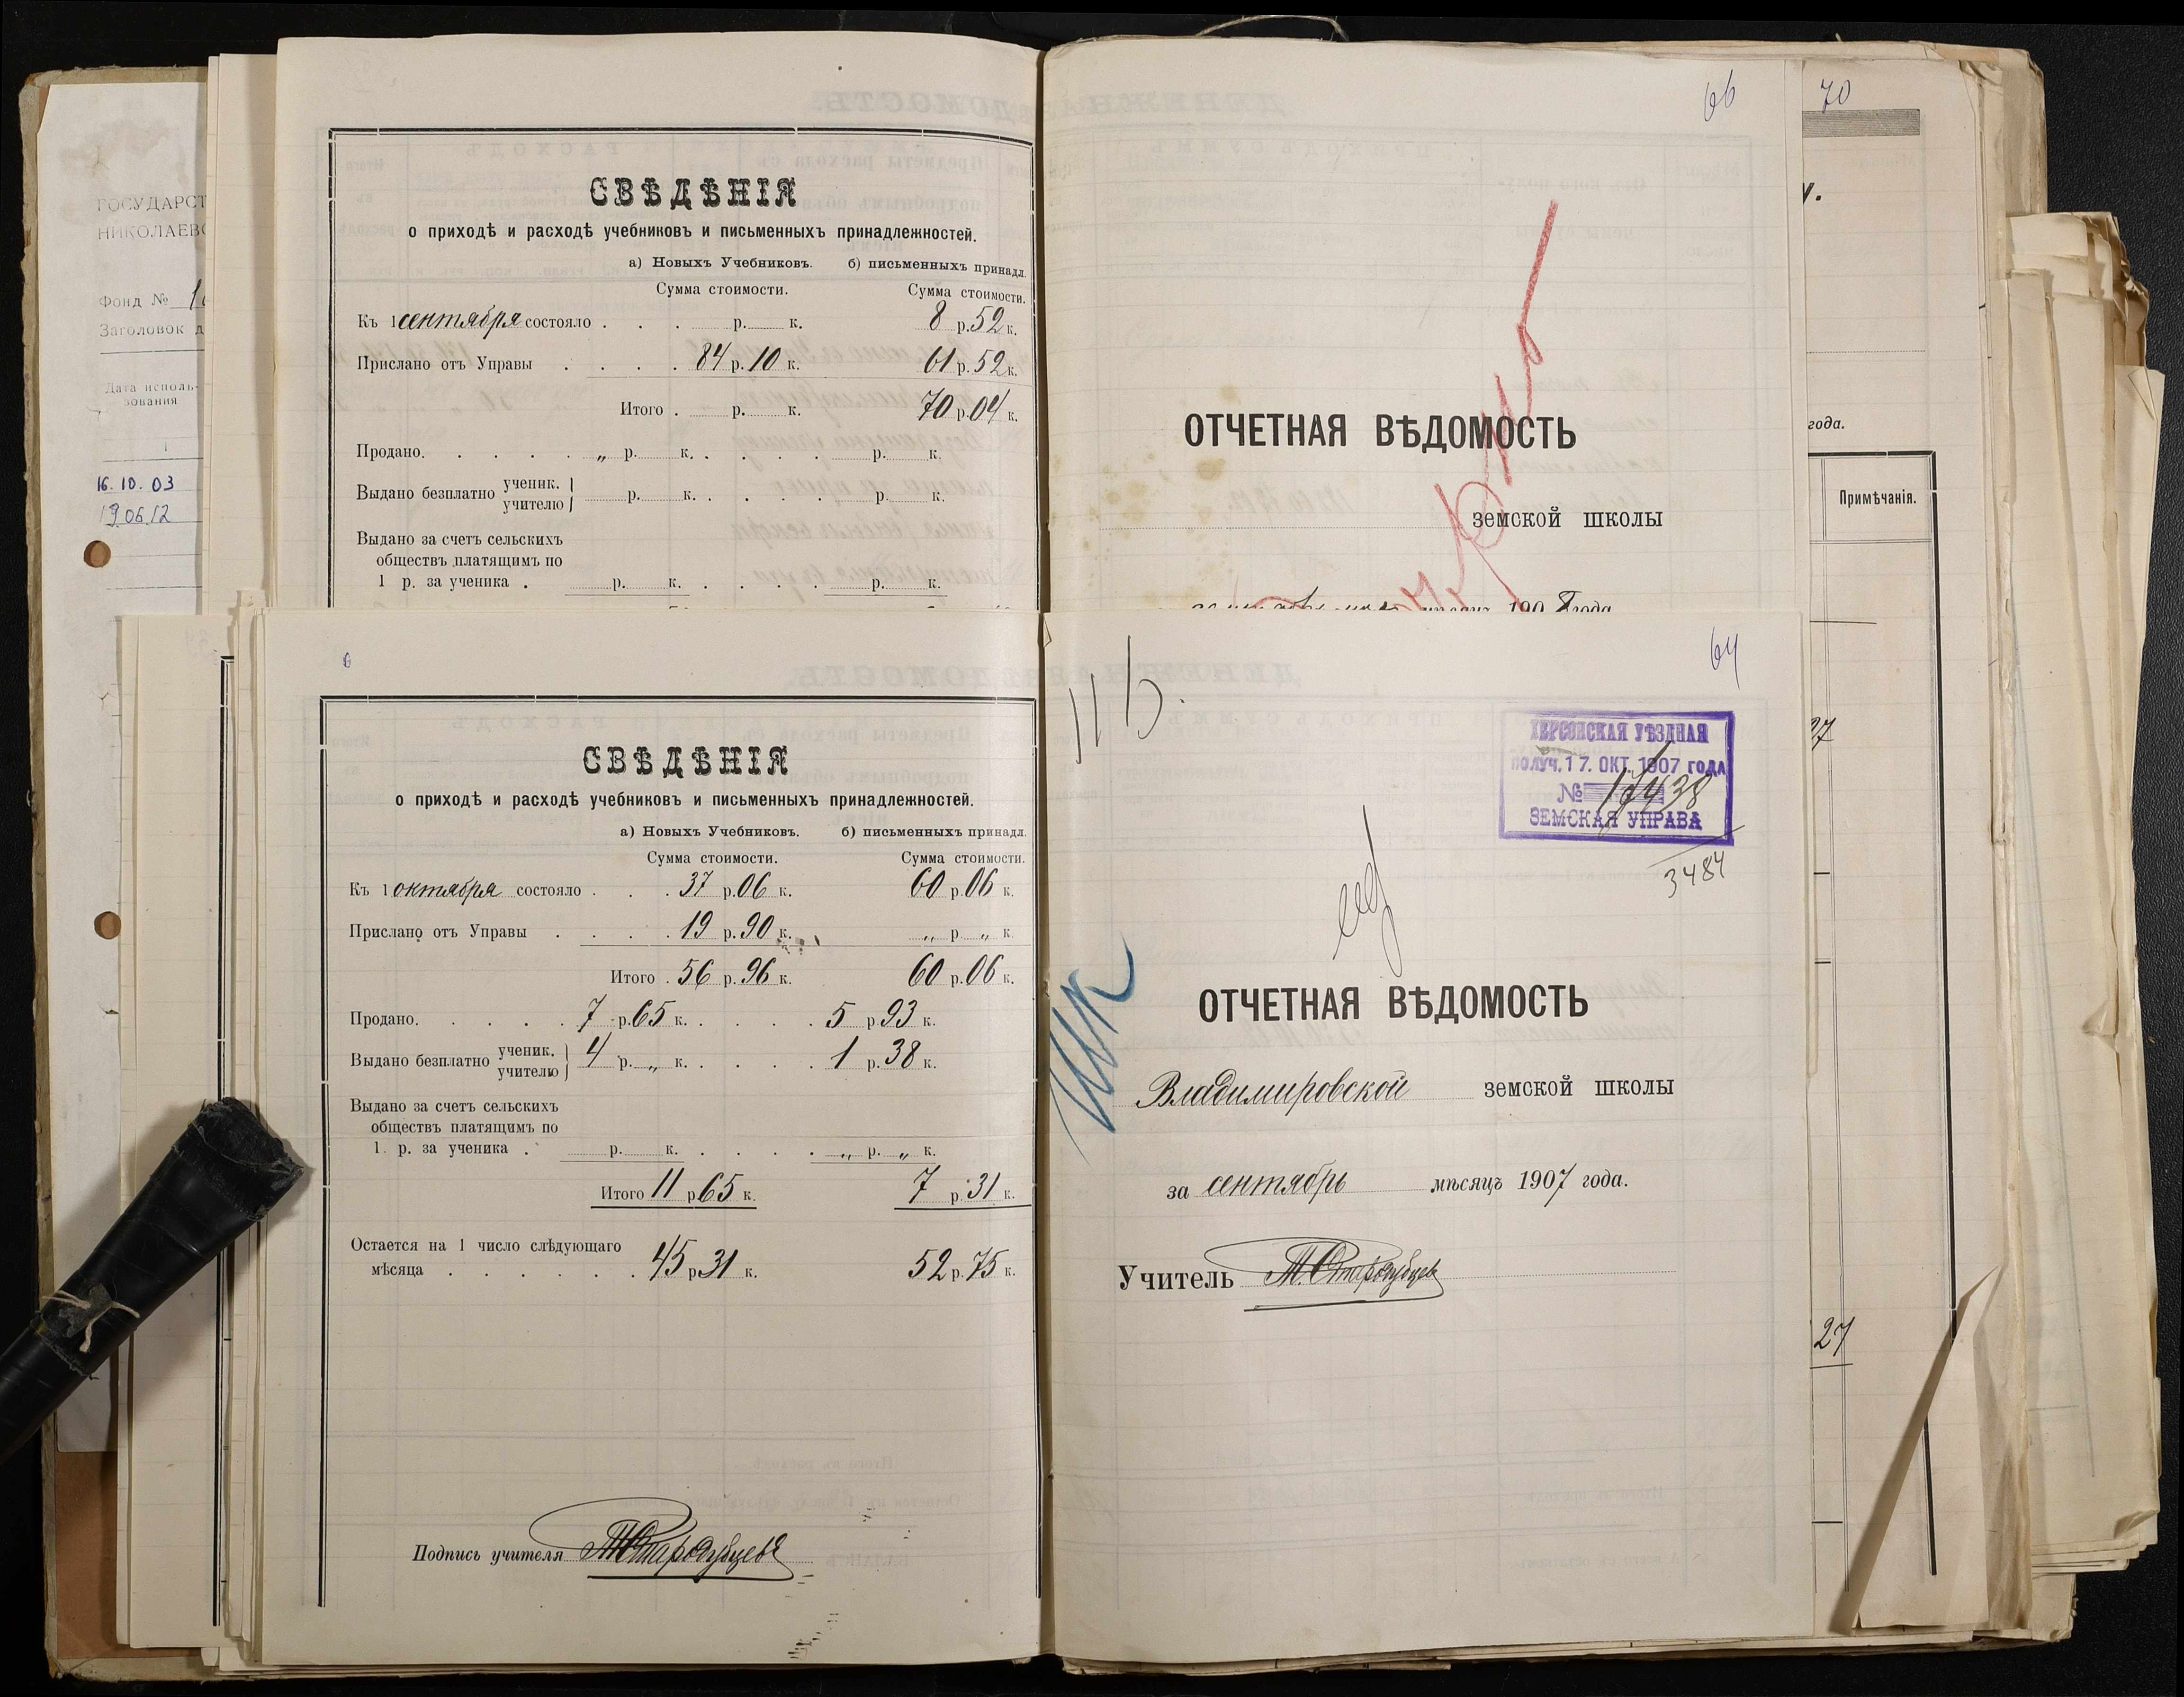 ГОСУДАРСТ
НИКОЛАЕВС
Фонд №
Заголовок д
Дата исполь-
зования
1
16.10.03
19.06.12
СВѢДѢНІЯ
о приходѣ и расходѣ учебниковъ и письменныхъ принадлежностей.
а) Новыхъ Учебниковъ. б) письменныхъ принадл.
Сумма стоимости. Сумма стоимости.
Къ 1 сентября состояло . . . р. к. 8 р. 52 к.
Прислано отъ Управы . . . . 84 р. 10 к. 61 р. 52 к.
Итого . р. к. 70 р. 04 к.
Продано. . . . . „ р. к. . . . . р. к.
Выдано безплатно ученик. р. к. . . . . р. к.
учителю
Выдано за счетъ сельскихъ
обществъ платящимъ по
1 р. за ученика . р. к. . . . . р. к.
66
ОТЧЕТНАЯ ВѢДОМОСТЬ
земской школы
мѣсяцъ 190 года
70
у.
года.
Примѣчанія.
27
27
6
СВѢДѢНІЯ
о приходѣ и расходѣ учебниковъ и письменныхъ принадлежностей.
а) Новыхъ Учебниковъ. б) письменныхъ принадл.
Сумма стоимости. Сумма стоимости.
Къ 1 октября состояло . . . 37 р. 06 к. 60 р. 06 к.
Прислано отъ Управы . . . . 19 р. 90 к. „ р. „ к.
Итого . 56 р. 96 к. 60 р. 06 к.
Продано. . . . . 7 р. 65 к. . . . . 5 р. 93 к.
Выдано безплатно ученик. 4 р. „ к. . . . . 1 р. 38 к.
учителю
Выдано за счетъ сельскихъ
обществъ платящимъ по
1. р. за ученика . р. к. . . . . „ р. „ к.
Итого 11 р 65 к. 7 р. 31 к.
Остается на 1 число слѣдующаго
мѣсяца . . . . . . 45 р 31 к. 52 р. 75 к.
Подпись учителя Т Стародубцевъ
64
11
ХЕРСОНСКАЯ УѢЗДНАЯ
ПОЛУЧ. 17. ОКТ. 1907 ГОДА
№ 17438
ЗЕМСКАЯ УПРАВА
3484
ОТЧЕТНАЯ ВѢДОМОСТЬ
Владимировской земской школы
за сентябрь мѣсяцъ 1907 года.
Учитель Т. Стародубцев